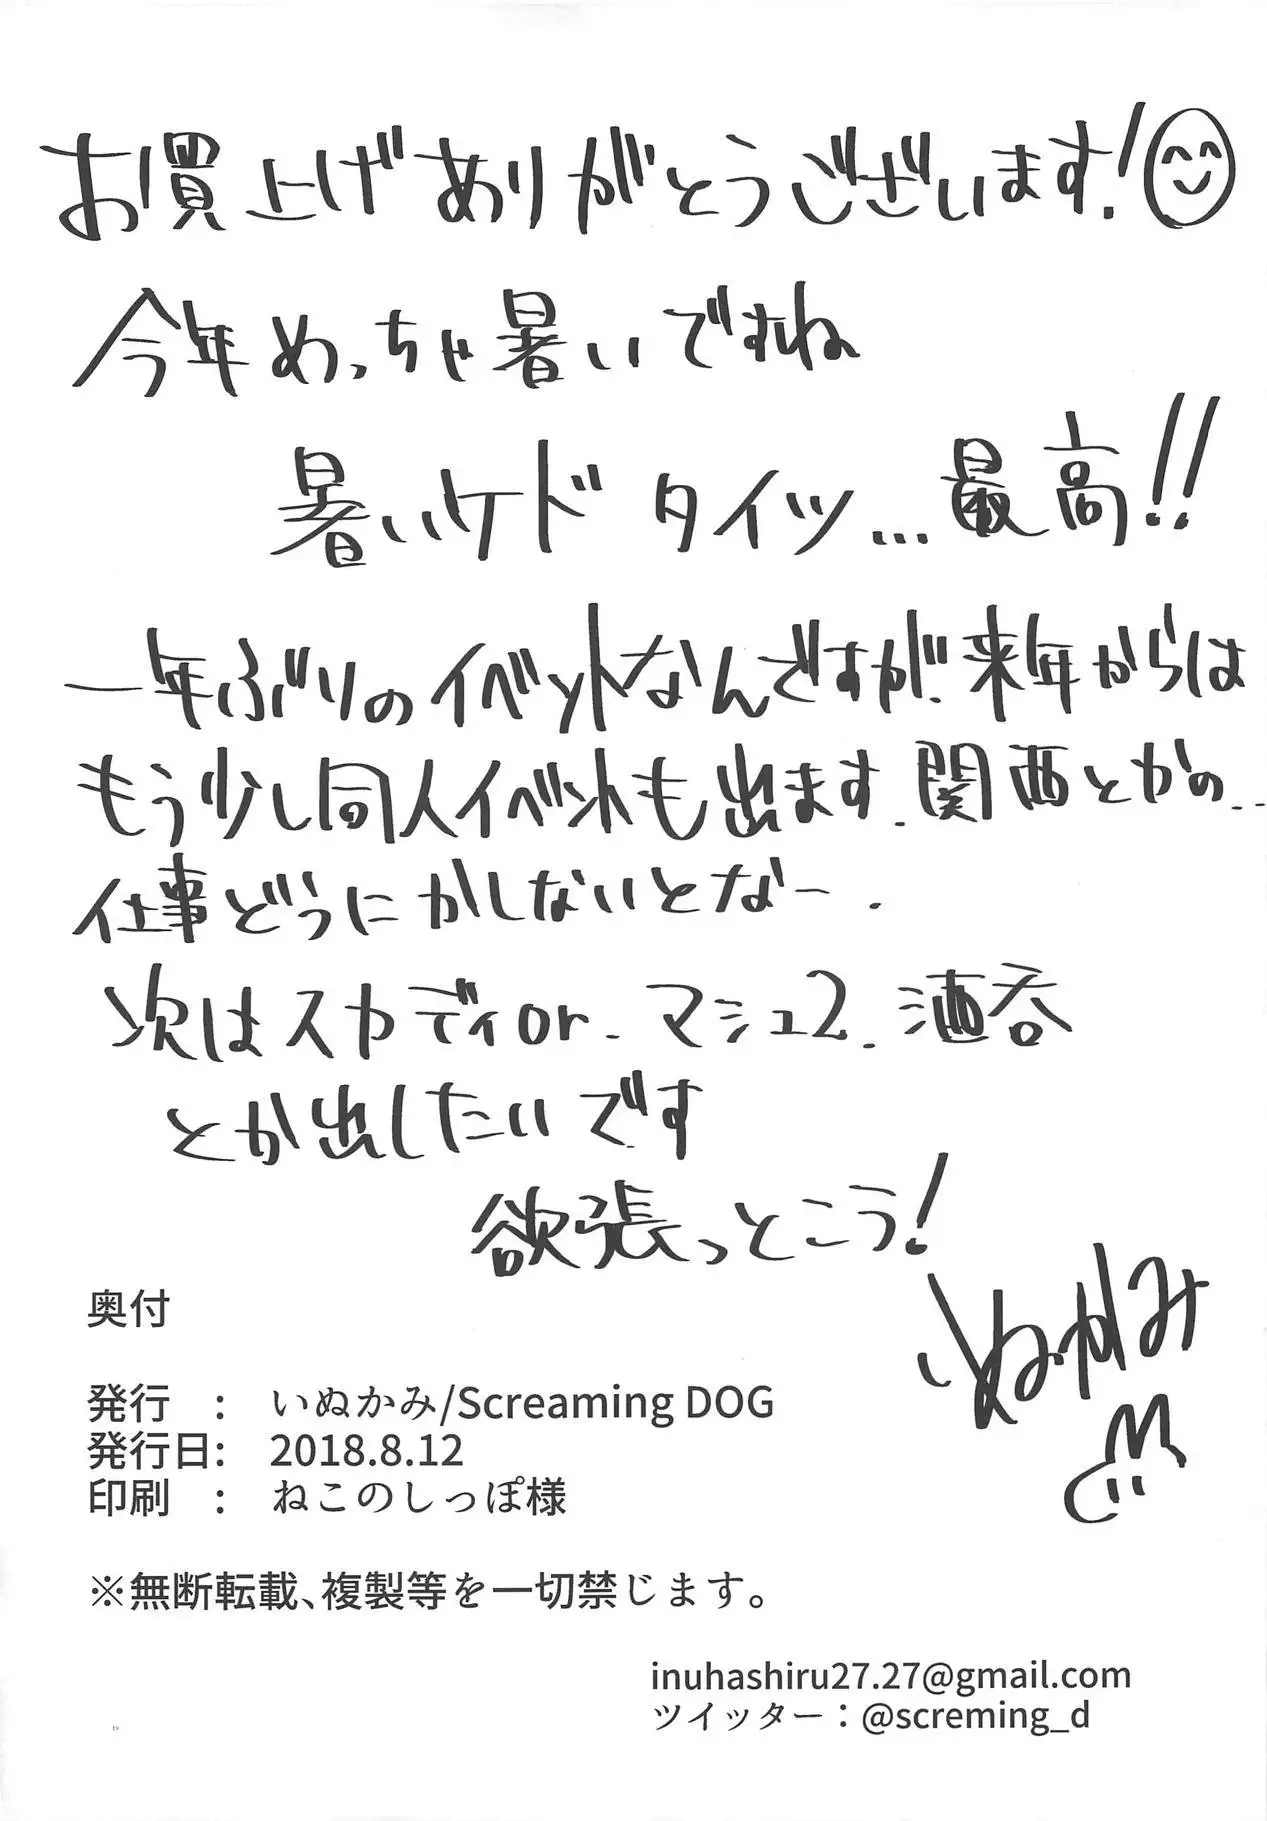 お買上げありがとうございます!
今年めっちゃ暑いですね
暑いケド タイツ...最高!!
一年ぶりのイベントなんですが、来年からは
もう少し同人イベントも出ます.関西とかの...
仕事どうにかしないとなー.
次はスカディor.マシュ2.酒呑
とか出したいです
欲張っとこう!
いぬかみ
奥付
発行 : いぬかみ/Screaming DOG
発行日: 2018.8.12
印刷 : ねこのしっぽ様
※無断転載、複製等を一切禁じます。
inuhashiru27.27@gmail.com
ツイッター:@screming_d